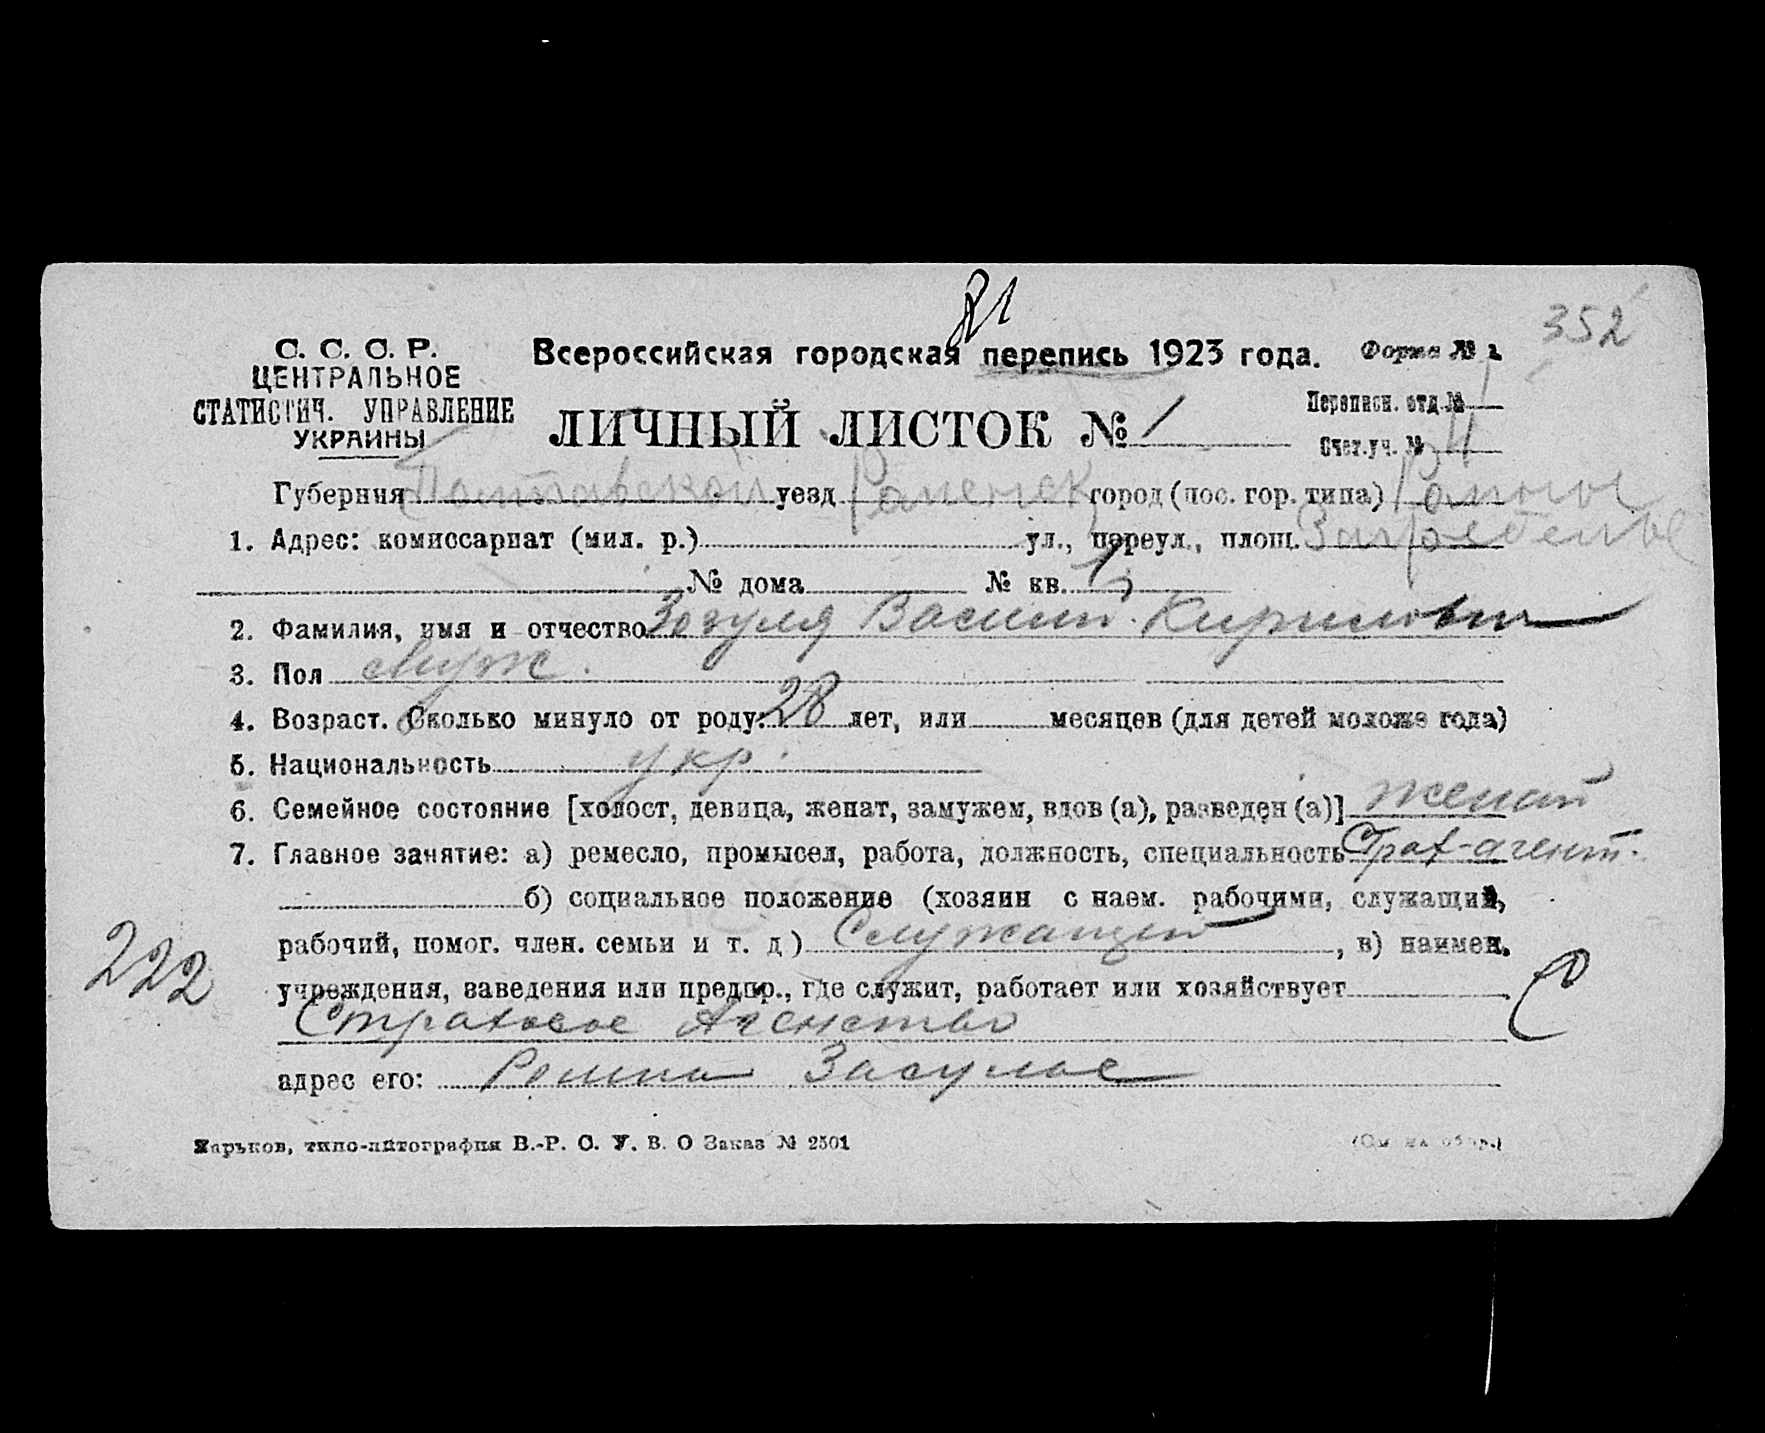 81
352
С. С. С. Р.
ЦЕНТРАЛЬНОЕ
СТАТИСТИЧ. УПРАВЛЕНИЕ
УКРАИНЫ
Всероссийская городская перепись 1923 года.
Форма № 1
ЛИЧНЫЙ ЛИСТОК № 1
Переписн. отд. №
Счет. уч. №
Губерния Полтавской уезд Роменск город (пос. гор. типа) Ромны
1. Адрес: комиссариат (мил. р.) ул., переул., площ. Загребелье
№ дома № кв. 1
2. Фамилия, имя и отчество Зозуля Василий Кирилович
3. Пол Муж.
4. Возраст. Сколько минуло от роду: 28 лет, или месяцев (для детей моложе года)
5. Национальность укр.
6. Семейное состояние [холост, девица, женат, замужем, вдов (а), разведен (а)] женат
7. Главное занятие: а) ремесло, промысел, работа, должность, специальность Страх-агент.
б) социальное положение (хозяин с наем. рабочими, служащий,
рабочий, помог. член. семьи и т. д) Служащий, в) наимен.
222
учреждения, заведения или предпр., где служит, работает или хозяйствует
С
Страховое Агенство
адрес его: Ромны Засулье
Харьков, типо-литография В.-Р. С. У. В. О Заказ № 2501
(См на обор.)